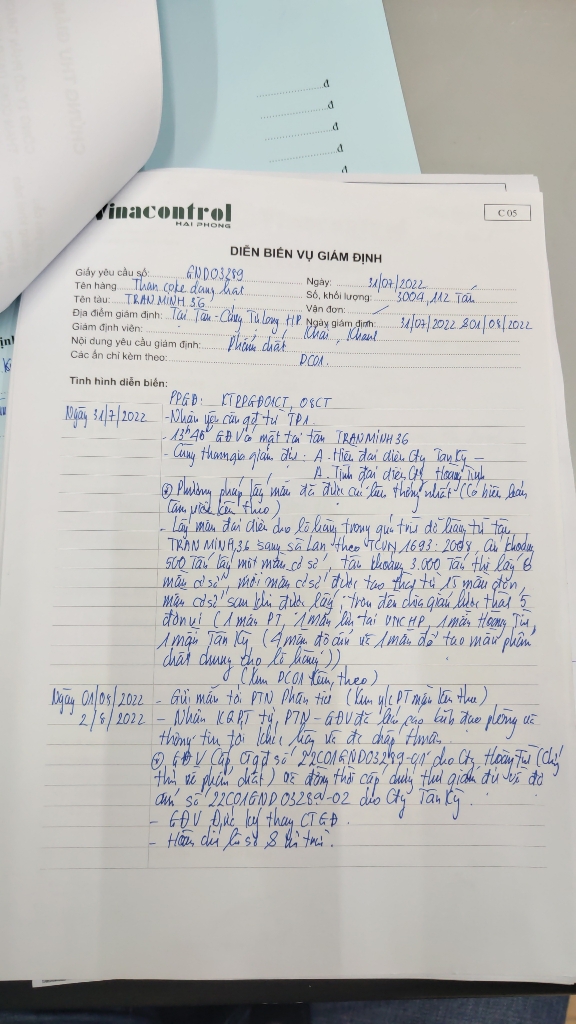 Vinacontrol
HAI PHONG
C 05
DIỄN BIẾN VỤ GIÁM ĐỊNH
Giấy yêu cầu số: GND03289 Ngày: 31/07/2022
Tên hàng Than coke dạng hạt Số, khối lượng: 3004,112 Tấn
Tên tàu: TRAN MINH 36 Vận đơn:
Địa điểm giám định: Tại Tàu - Cảng Tự Long HP Ngày giám định: 31/07/2022 01/08/2022
Giám định viên: Khải, Khanh
Nội dung yêu cầu giám định: Phẩm chất
Các ấn chỉ kèm theo: DC01.
Tình hình diễn biến:
PPGĐ:
Ngày 31/7/2022 - Nhận yêu cầu gđ từ TP1.
- 13h45 GĐV có mặt tại tàu TRANMINH36
- Cùng tham gia giám định: A. Hiền đại diện Cty Tân Kỳ
A. Tịnh đại diện Cty Hoàng Tịnh
Phương pháp lấy mẫu đã được các bên thống nhất (Có biên bản
làm việc kèm theo)
- Lấy mẫu đại diện cho lô hàng trong quá trình dỡ hàng từ tàu
TRAN MINH 36 sang sà lan theo TCVN 1693: 2008, cứ khoảng
500 Tấn lấy một mẫu cơ sở, tàu khoảng 3.000 Tấn thì lấy 6
mẫu cơ sở, mỗi mẫu cơ sở được tạo thành từ 15 mẫu đơn,
mẫu cơ sở sau khi được lấy, trộn đều chia giản lược thành 5
đơn vị (1 mẫu PT, 1 mẫu lưu tại VNCHP, 1 mẫu Hoàng Tịnh,
1 mẫu Tân Kỳ (4 mẫu độ ẩm và 1 mẫu để tạo mẫu phẩm
chất chung cho lô hàng))
(Kèm DC01 kèm theo)
Ngày 01/08/2022 - Gửi mẫu tới PTN Phân tích (Kèm y/c PT mẫu kèm theo)
2/8/2022 - Nhận KQPT từ PTN - GĐV đã báo cáo lãnh đạo phòng và
thông tin tới khách hàng và đc chấp thuận.
GĐV cấp CTGĐ số 22C01GND03289-01 cho Cty Hoàng Tịnh (
và phẩm chất) và đồng thời cấp chứng thư giám định và độ
ẩm số 22C01GND03289-02 cho Cty Tân Kỳ.
- GĐV Đức ký thay CTGĐ.
- Hoàn chỉnh hồ sơ & lưu trữ.